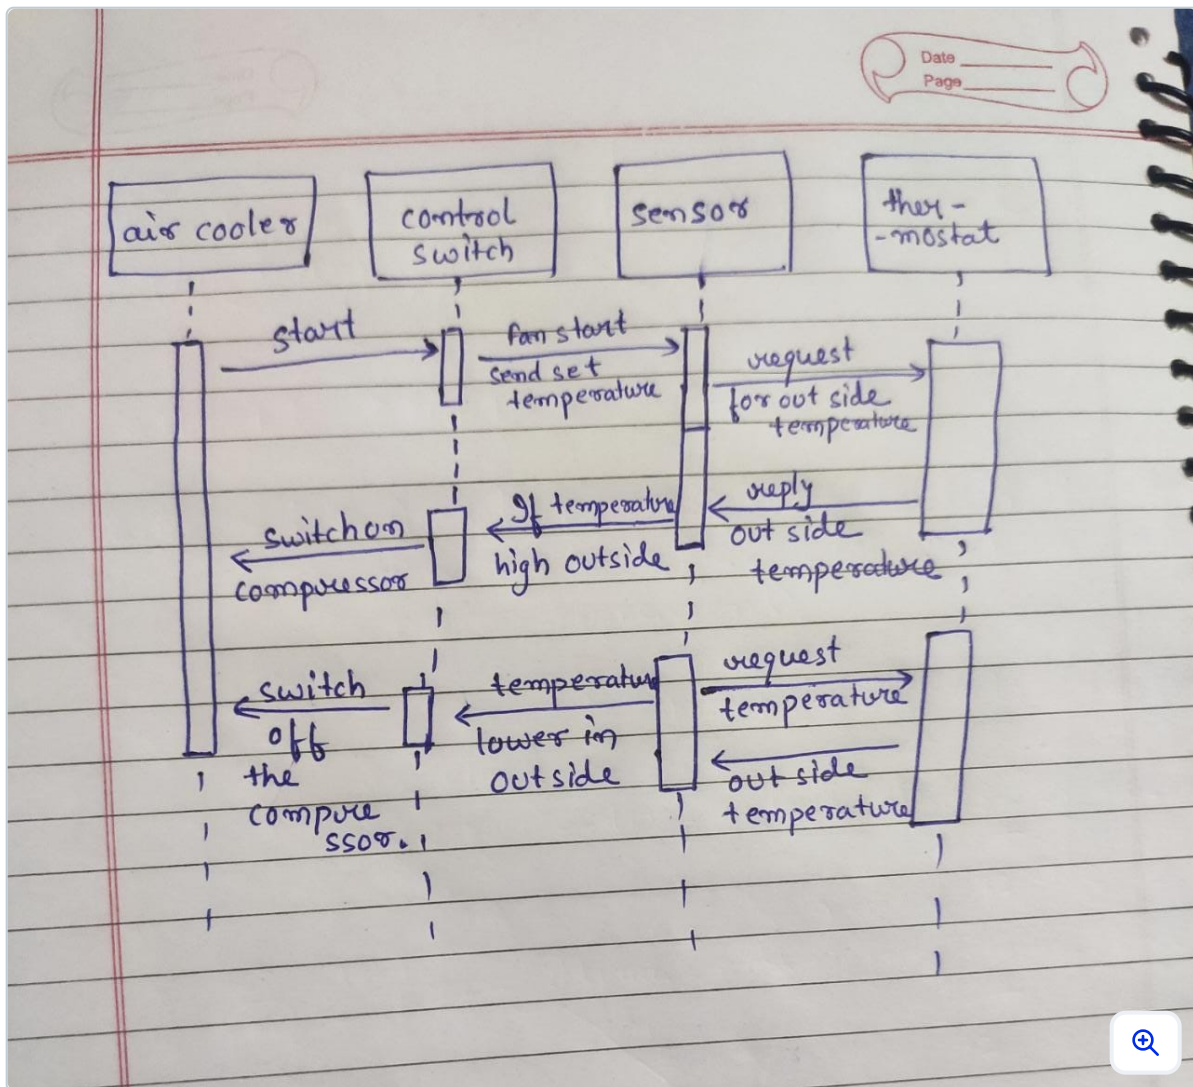 Date
Page
air cooler
control
switch
sensor
ther-
-mostat
start
fan start
send set
temperature
request
for out side
temperature
reply
out side
temperature
If temperature
high outside
switch on
compressor
request
temperature
out side
temperature
temperature
lower in
out side
switch
off
the
compre
ssor.